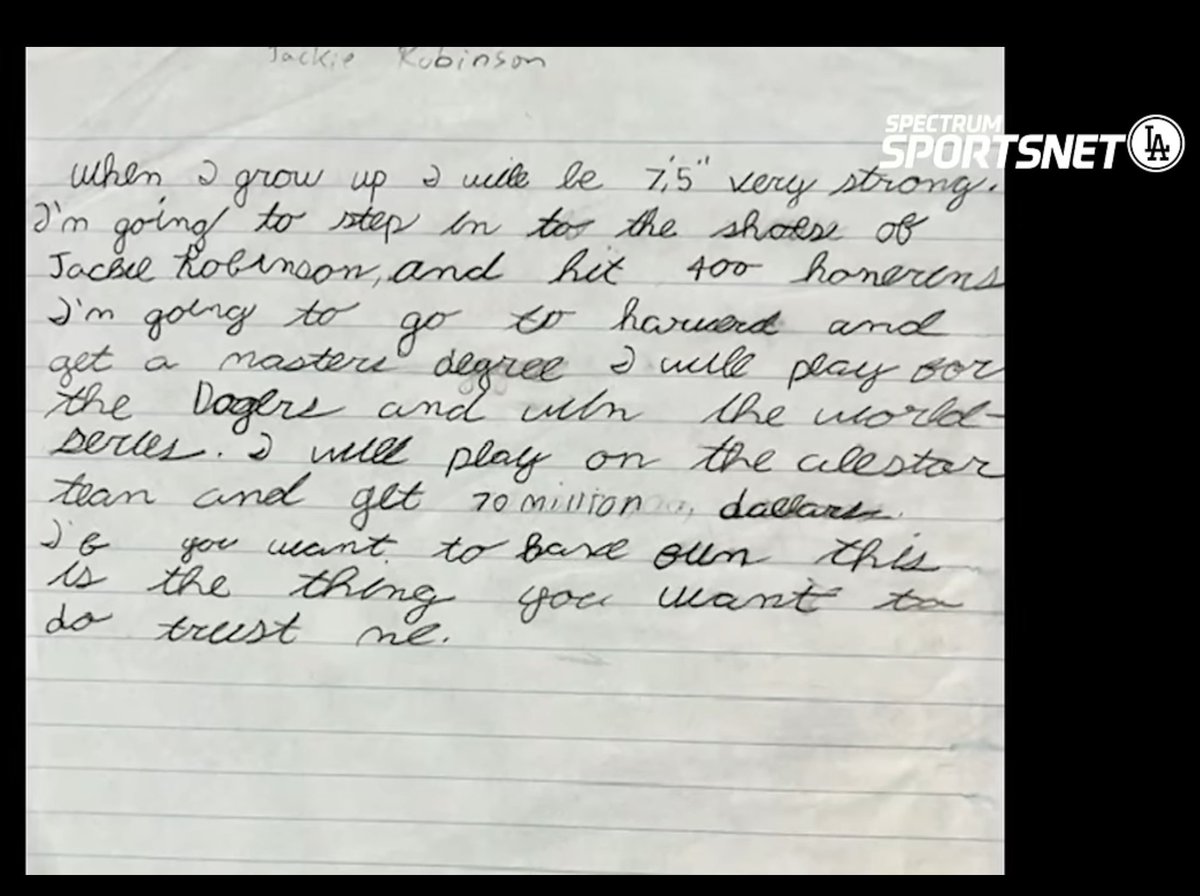 Jackie Robinson
SPECTRUM
SPORTSNET LA
When I grow up I will be 7,5" very strong.
I'm going to step in to the shoes of
Jackie Robinson, and hit 400 honeruns
I'm going to go to harverd and
get a masters degree I will play for
the Dogers and win the world-
series. I will play on the allstar
tean and get 70 million dallars.
If you want to have fun this
is the thing you want to
do trust me.